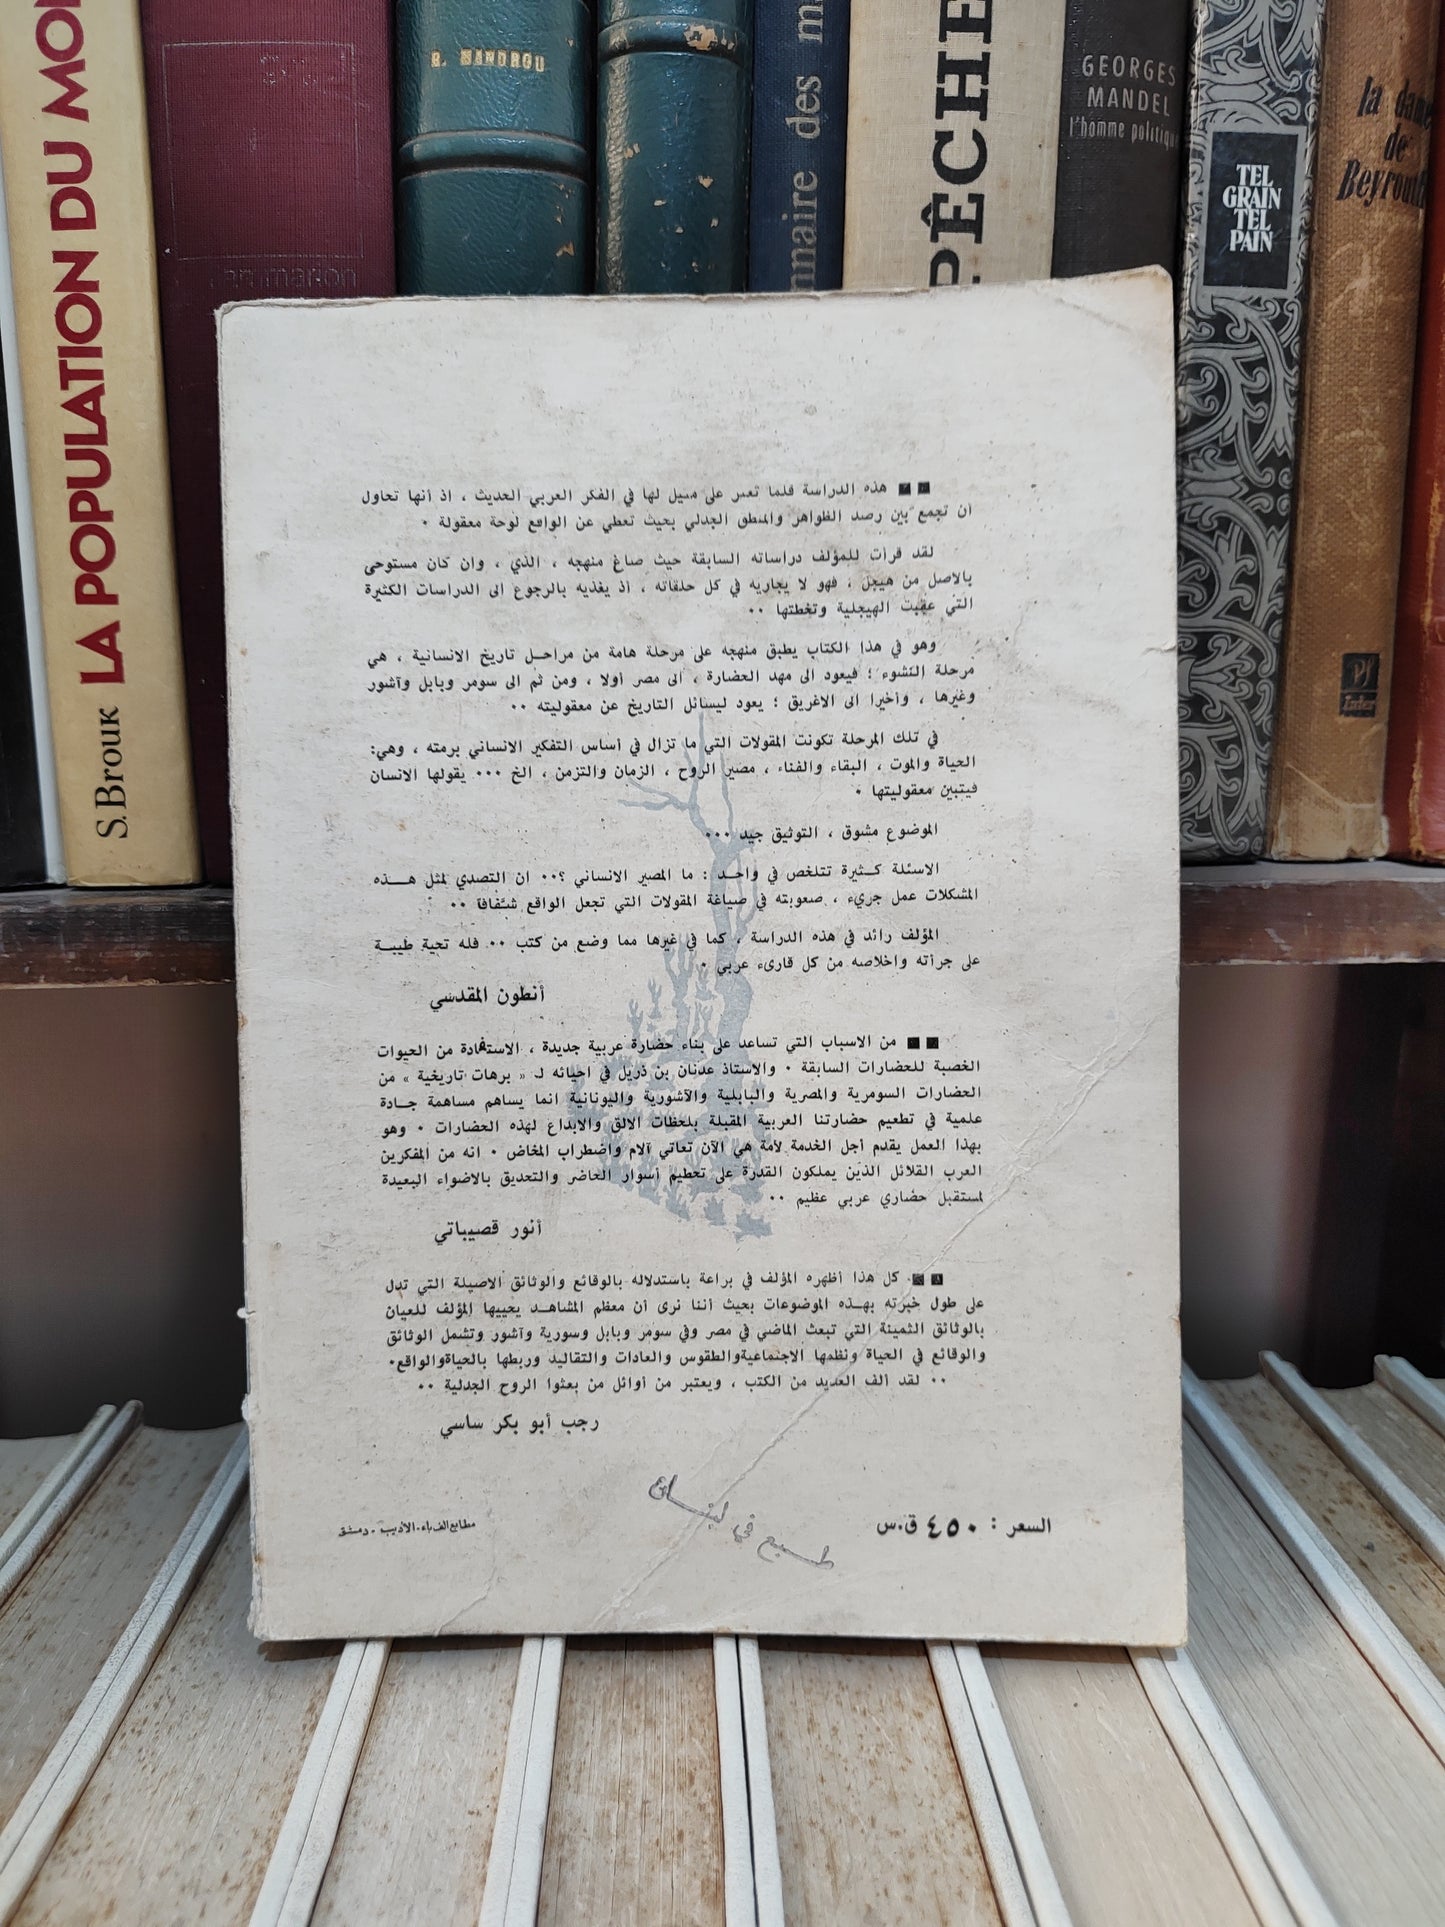 LA POPULATION DU MO
S. BROUK
R. MANDROU
nnaire des m
PÊCHE
GEORGES
MANDEL
l'homme politique
TEL
GRAIN
TEL
PAIN
la dame
de
Beyrouth
Pf
Inter
■■ هذه الدراسة قلما نعثر على مثيل لها في الفكر العربي الحديث ، اذ أنها تحاول
أن تجمع بين رصد الظواهر والمنطق الجدلي بحيث تعطي عن الواقع لوحة معقولة ٠
لقد قرأت للمؤلف دراساته السابقة حيث صاغ منهجه ، الذي ، وان كان مستوحى
بالاصل من هيجل ، فهو لا يجاريه في كل حلقاته ، اذ يغذيه بالرجوع الى الدراسات الكثيرة
التي عقبت الهيجلية وتخطتها ٠٠
وهو في هذا الكتاب يطبق منهجه على مرحلة هامة من مراحل تاريخ الانسانية ، هي
مرحلة النشوء ؛ فيعود الى مهد الحضارة ، الى مصر أولا ، ومن ثم الى سومر وبابل وآشور
وغيرها ، وأخيرا الى الاغريق ؛ يعود ليسائل التاريخ عن معقوليته ٠٠
في تلك المرحلة تكونت المقولات التي ما تزال في أساس التفكير الانساني برمته ، وهي:
الحياة والموت ، البقاء والفناء ، مصير الروح ، الزمان والتزمن ، الخ ٠٠٠ يقولها الانسان
فيتبين معقوليتها ٠
الموضوع مشوق ، التوثيق جيد ٠٠٠
الاسئلة كثيرة تتلخص في واحد : ما المصير الانساني ؟٠٠ ان التصدي لمثل هذه
المشكلات عمل جريء ، صعوبته في صياغة المقولات التي تجعل الواقع شفافا ٠٠
المؤلف رائد في هذه الدراسة ، كما في غيرها مما وضع من كتب ٠٠ فله تحية طيبة
على جرأته واخلاصه من كل قارىء عربي ٠
أنطون المقدسي
■■ من الاسباب التي تساعد على بناء حضارة عربية جديدة ، الاستفادة من الحيوات
الخصبة للحضارات السابقة ٠ والاستاذ عدنان بن ذريل في احيائه لـ « برهات تاريخية » من
الحضارات السومرية والمصرية والبابلية والآشورية واليونانية انما يساهم مساهمة جادة
علمية في تطعيم حضارتنا العربية المقبلة بلحظات الالق والابداع لهذه الحضارات ٠ وهو
بهذا العمل يقدم أجل الخدمة لأمة هي الآن تعاني آلام واضطراب المخاض ٠ انه من المفكرين
العرب القلائل الذين يملكون القدرة على تحطيم أسوار الحاضر والتحديق بالاضواء البعيدة
لمستقبل حضاري عربي عظيم ٠٠
أنور قصيباتي
■■ كل هذا أظهره المؤلف في براعة باستدلاله بالوقائع والوثائق الاصيلة التي تدل
على طول خبرته بهذه الموضوعات بحيث أننا نرى أن معظم المشاهد يحييها المؤلف للعيان
بالوثائق الثمينة التي تبعث الماضي في مصر وفي سومر وبابل وسورية وآشور وتشمل الوثائق
والوقائع في الحياة ونظمها الاجتماعية والطقوس والعادات والتقاليد وربطها بالحياة والواقع٠
٠٠ لقد ألف العديد من الكتب ، ويعتبر من أوائل من بعثوا الروح الجدلية ٠٠
رجب أبو بكر ساسي
طبع في لبنان
السعر : ٤٥٠ ق.س
مطابع الف باء - الأديب - دمشق